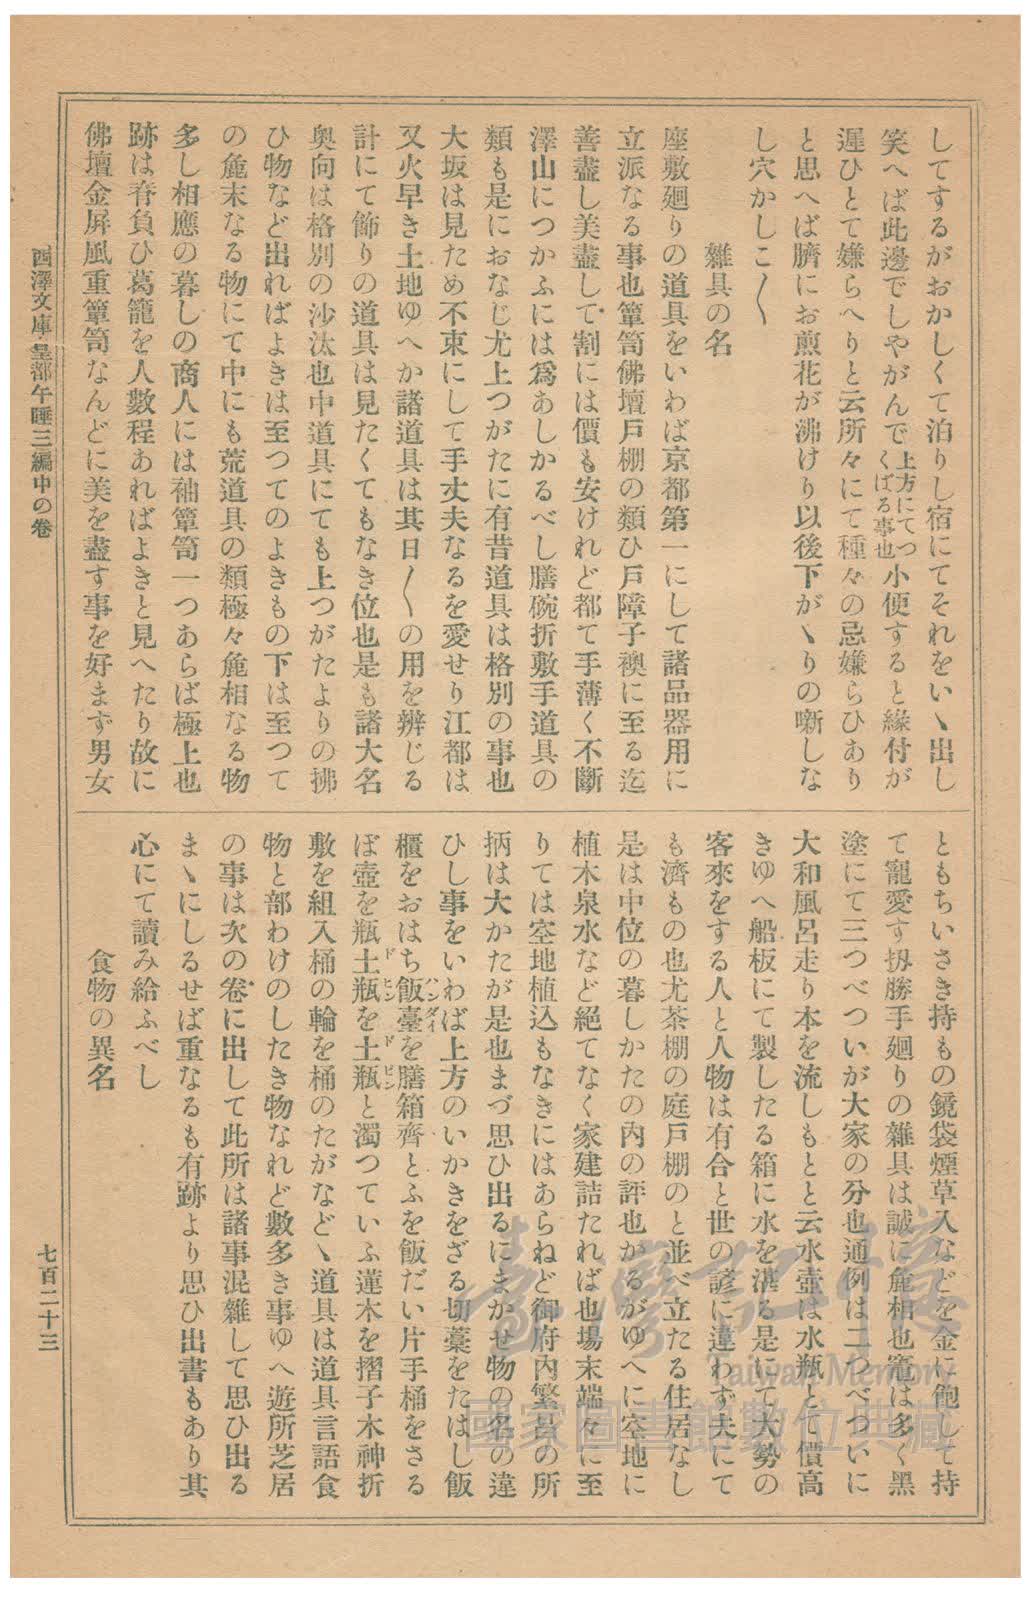 してするがおかしくて泊りし宿にてそれをいゝ出し
笑へば此邊でしやがんで上方にてつくばる事也小便すると緣付が
遲ひとて嫌らへりと云所々にて種々の忌嫌らひあり
と思へば臍にお煎花が沸けり以後下がゝりの噺しな
し穴かしこ〳〵
雜具の名
座敷廻りの道具をいわば京都第一にして諸品器用に
立派なる事也簞笥佛壇戶棚の類ひ戶障子襖に至る迄
善盡し美盡して割には價も安けれど都て手薄く不斷
澤山につかふには爲あしかるべし膳碗折敷手道具の
類も是におなじ尤上つがたに有昔道具は格別の事也
大坂は見ため不束にして手丈夫なるを愛せり江都は
又火早き土地ゆへか諸道具は其日〳〵の用を辨じる
計にて飾りの道具は見たくてもなき位也是も諸大名
奧向は格別の沙汰也中道具にても上つがたよりの拂
ひ物など出ればよきは至つてのよきもの下は至つて
の麁末なる物にて中にも荒道具の類極々麁相なる物
多し相應の暮しの商人には袖簞笥一つあらば極上也
跡は脊負ひ葛籠を人數程あればよきと見へたり故に
佛壇金屛風重簞笥なんどに美を盡す事を好まず男女
ともちいさき持もの鏡袋煙草入などを金に飽して持
て寵愛す扨勝手廻りの雜具は誠に麁相也竈は多く黑
塗にて三つべついが大家の分也通例は二つべついに
大和風呂走り本を流しもとと云水壺は水瓶とて價高
きゆへ船板にて製したる箱に水を湛る是にて大勢の
客來をする人と人物は有合と世の諺に違わず夫にて
も濟もの也尤茶棚の庭戶棚のと並べ立たる住居なし
是は中位の暮しかたの內の評也かるがゆへに空地に
植木泉水など絕てなく家建詰たれば也場末端々に至
りては空地植込もなきにはあらねど御府內繁昌の所
柄は大かたが是也まづ思ひ出るにまかせ物の名の違
ひし事をいわば上方のいかきをざる切藁をたはし飯
櫃をおはち飯臺ハンダイを膳箱齊とふを飯だい片手桶をさる
ぼ壺を瓶土瓶ドヒンを土瓶ドビンと濁つていふ蓮木を摺子木神折
敷を組入桶の輪を桶のたがなどゝ道具は道具言語食
物と部わけのしたき物なれど數多き事ゆへ遊所芝居
の事は次の卷に出して此所は諸事混雜して思ひ出る
まゝにしるせば重なるも有跡より思ひ出書もあり其
心にて讀み給ふべし
食物の異名
西澤文庫皇都午睡三編中の卷
七百二十三
臺灣記憶
Taiwan Memory
國家圖書館數位典藏